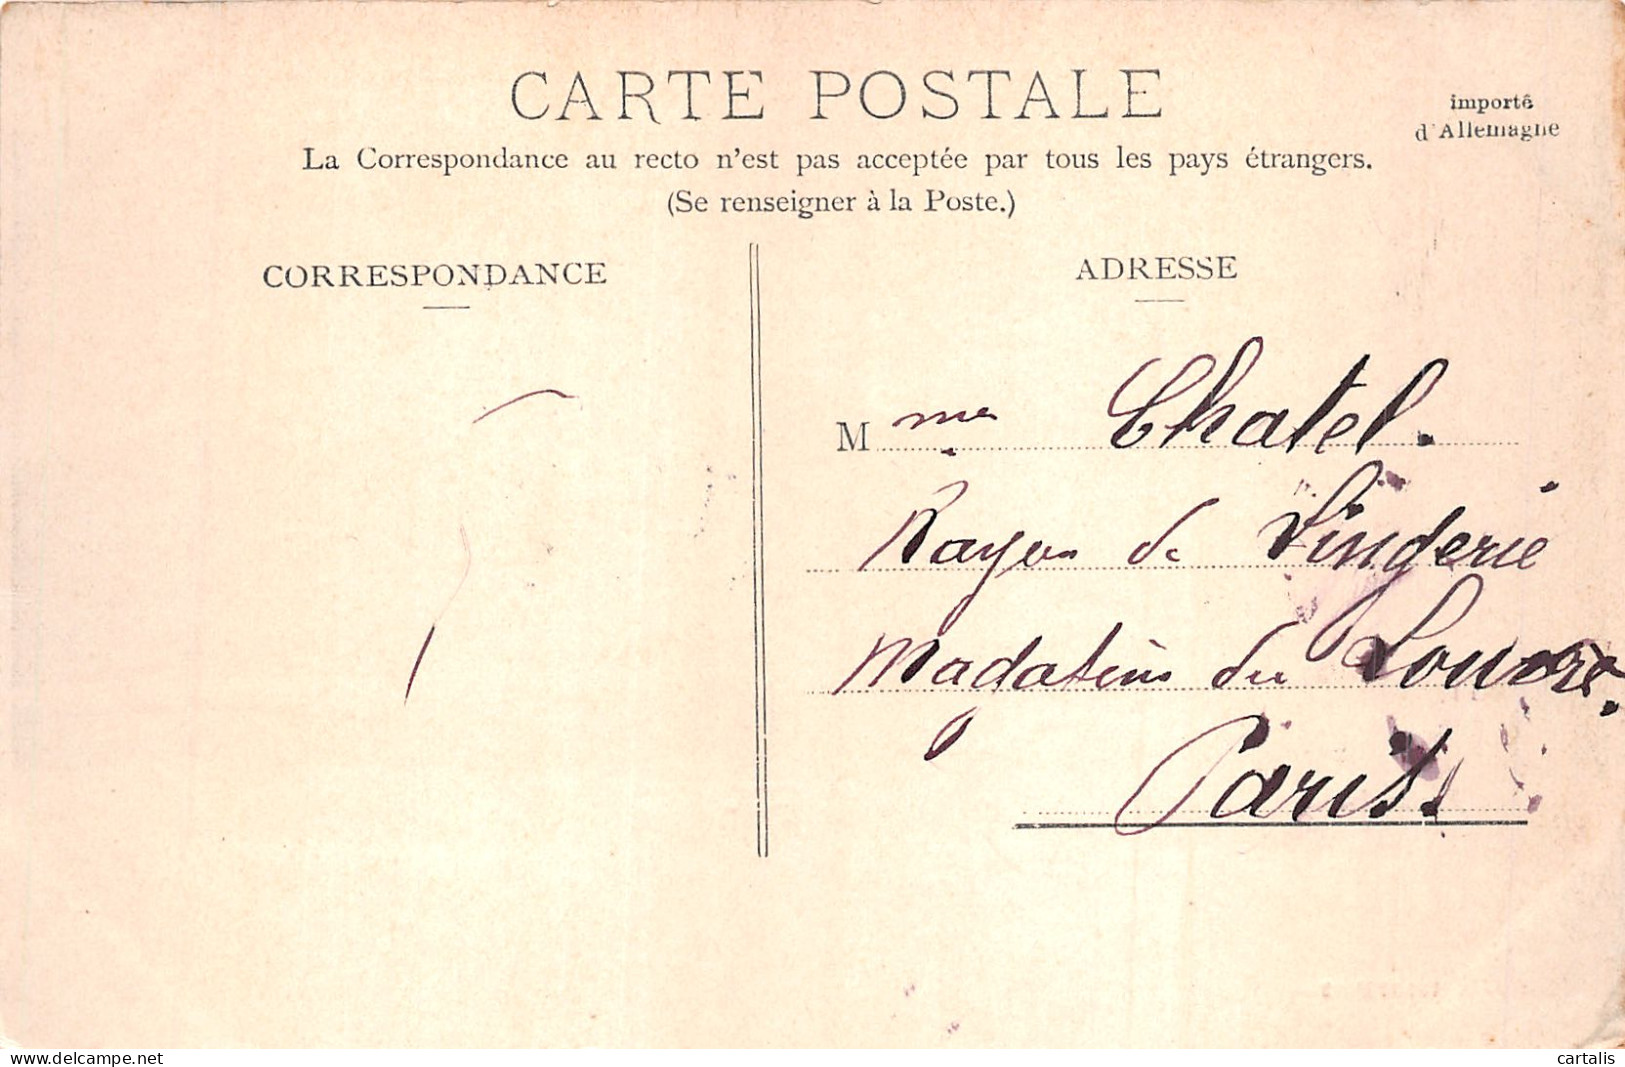 CARTE POSTALE
importé
d'Allemagne
La Correspondance au recto n'est pas acceptée par tous les pays étrangers.
(Se renseigner à la Poste.)
CORRESPONDANCE
ADRESSE
Mme Chatel.
Rayon de Lingerie
Magasins du Louvre.
Paris.
www.delcampe.net
cartalis